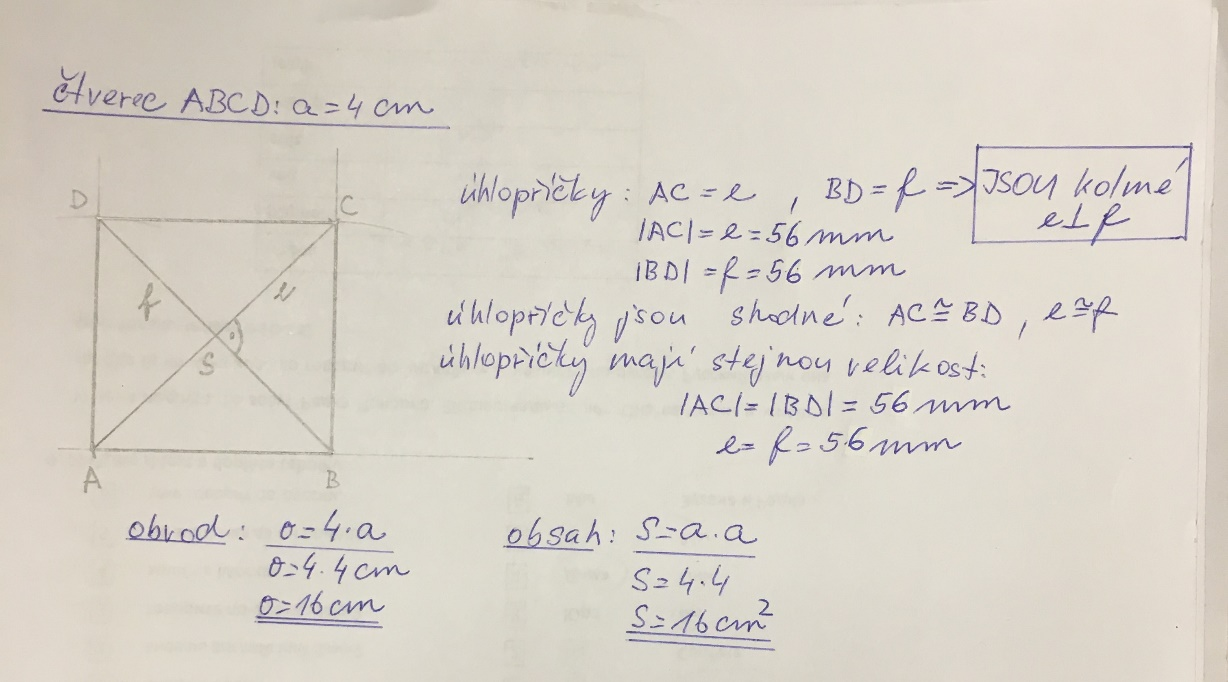 čtverec ABCD: a = 4 cm
D
C
f
e
S
A
B
úhlopříčky: AC = e , BD = f => JSOU kolmé
e⊥f
|AC| = e = 56 mm
|BD| = f = 56 mm
úhlopříčky jsou shodné: AC ≅ BD , e ≅ f
úhlopříčky mají stejnou velikost:
|AC| = |BD| = 56 mm
e = f = 56 mm
obvod: o = 4 · a
o = 4 · 4 cm
o = 16 cm
obsah: S = a · a
S = 4 · 4
S = 16 cm²